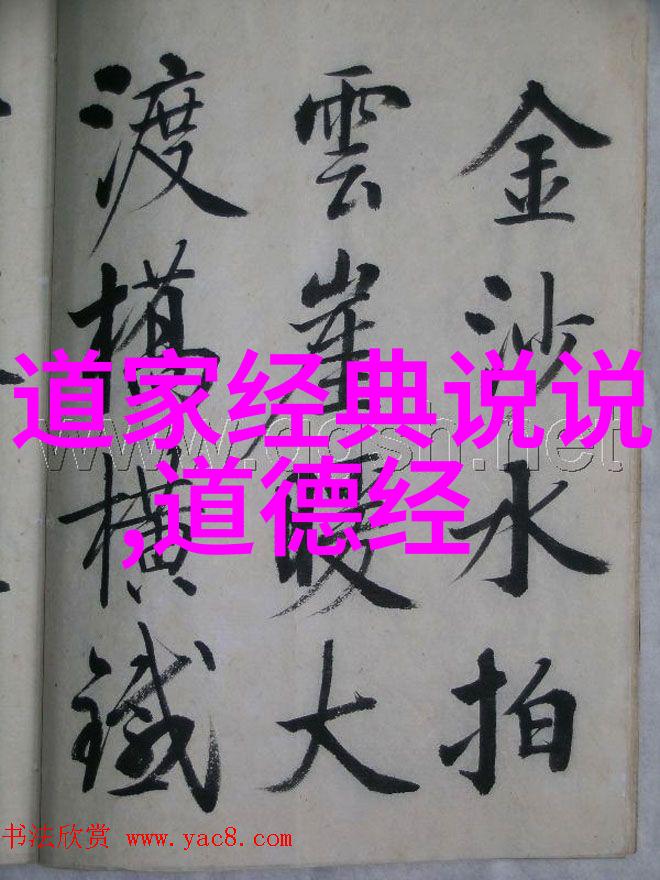 金沙水拍
雲崖暖大
渡橋橫鐵
道家经典说说
,道德经
书法欣赏 www.yac8.com